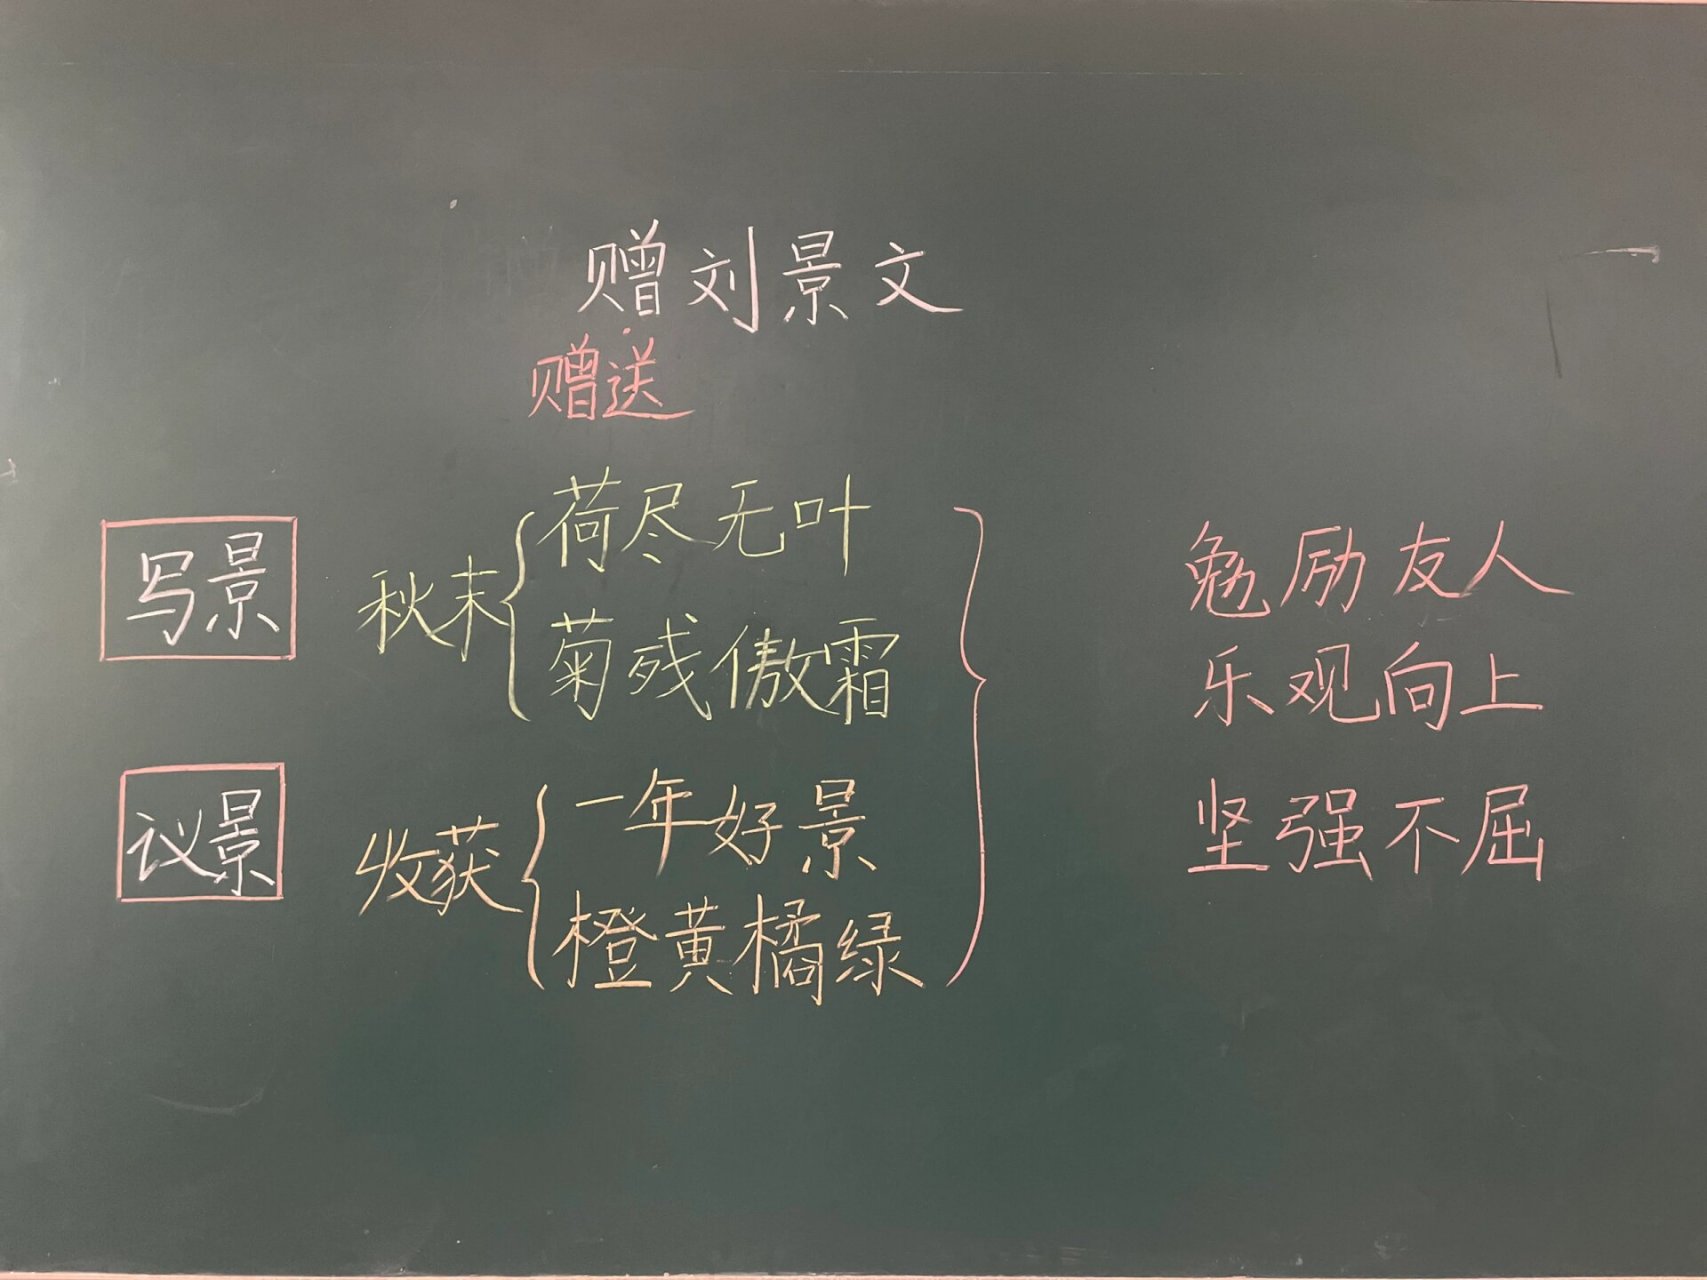 赠刘景文
赠送
写景
秋末
荷尽无叶
菊残傲霜
议景
收获
一年好景
橙黄橘绿
勉励友人
乐观向上
坚强不屈